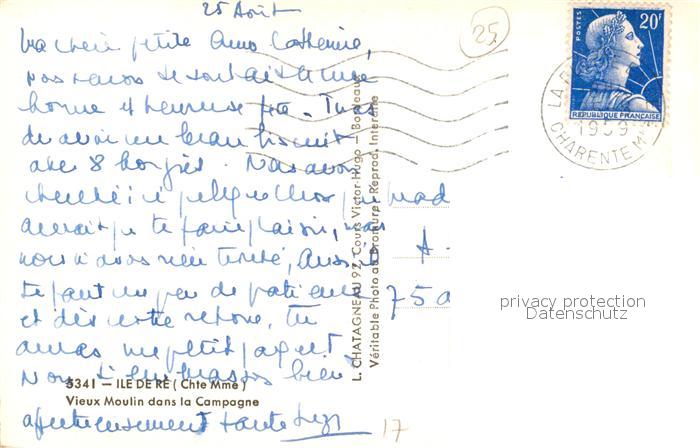 25 Août
25
Ma chère petite Anne Catherine,
nous venons te souhaiter une
bonne et heureuse fête. Tu as
dû avoir un beau biscuit
avec 8 bougies. Nous avons
cherché ici quelque chose qui
aurait pu te faire plaisir, mais
nous n'avons rien trouvé, Aussi il
te faut un peu de patience
et dès notre retour, tu
auras un petit paquet.
Nous t'embrassons bien
affectueusement tante
5341 — ILE DE RÉ (Chte Mme)
Vieux Moulin dans la Campagne
L. CHATAGNEAU 92, Cours Victor-Hugo — Bordeaux
Véritable Photo au Bromure - Reprod. Interdite
POSTES
20F
REPUBLIQUE FRANÇAISE
1959
CHARENTE MME
A.
75
17
privacy protection
Datenschutz